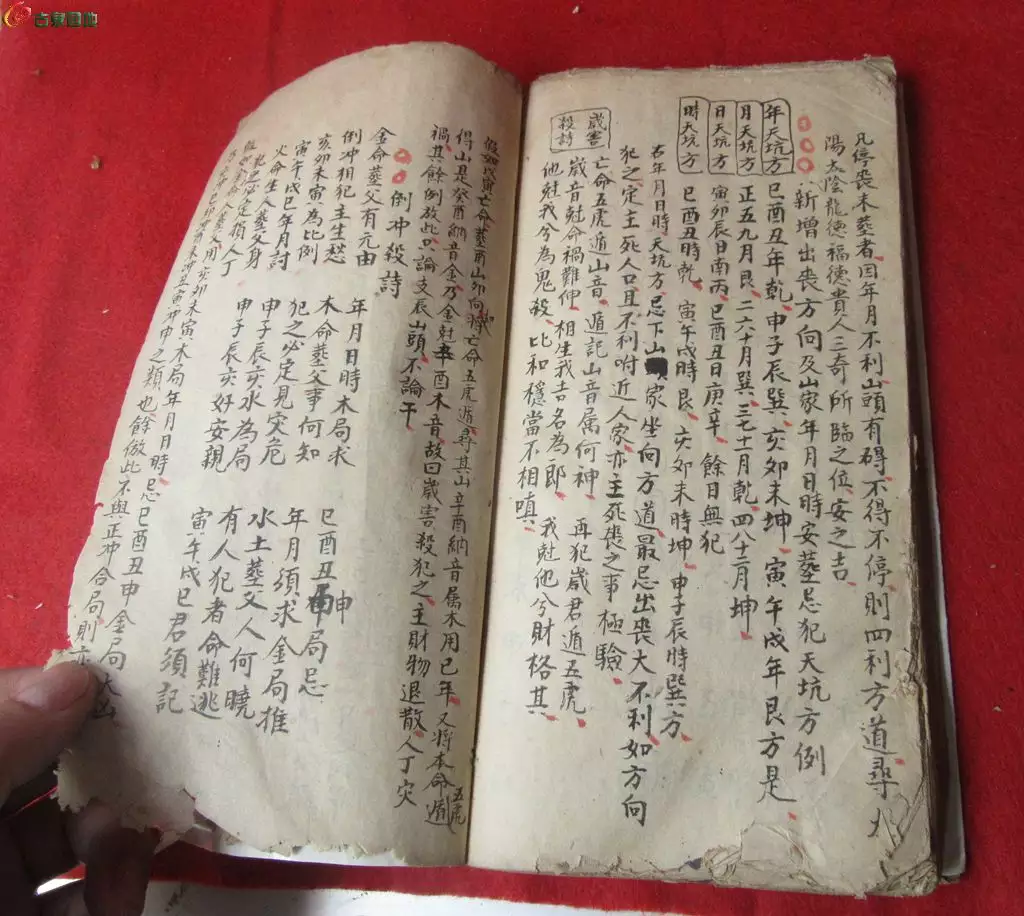 古泉園地
凡停喪未塟者因年月不利山頭有碍不得不停則四利方道尋
陽太陰龍德福德貴人三奇所臨之位安之吉
新增出喪方向及山家年月日時安塟忌犯天坑方例
年天坑方 巳酉丑年乾 申子辰巽 亥卯未坤 寅午戌年艮方是
月天坑方 正五九月艮 二六十月巽 三七十一月乾 四八十二月坤
日天坑方 寅卯辰日南丙 巳酉丑日庚辛 餘日無犯
時天坑方 巳酉丑時乾 寅午戌時艮 亥卯未時坤 申子辰時巽方
右年月日時天坑方忌下山家坐向方道最忌出喪大不利如方向
犯之定主死人口且不利附近人家亦主死喪之事極驗
歲害殺詩 亡命五虎遁山音 遁記山音属何神 再犯歲君遁五虎
歲音尅命禍難伸 相生我吉名為郎 我尅他兮財格其
他尅我兮為鬼殺 比和穩當不相嗔
假如戊寅亡命塟酉山卯向將亡命五虎遁尋其山辛酉納音属木用巳年又將本命遁五虎
得山是癸酉納音金乃金尅辛酉木音故曰歲害殺犯之主財物退散人丁灾
禍其餘例放此只論支辰山頭不論干
倒冲殺詩
金命塟父有元由 年月日時木局求 巳酉丑申局忌
倒冲相犯主生愁 木命塟父事何知 年月須求金局推
亥卯未寅為比例 犯之必定見灾危 水土塟父人何曉
寅午戌巳年月討 申子辰亥水為局 有人犯者命難逃
火命生人塟父身 申子辰亥好安親 寅午戌巳君須記
犯之必定損人丁
假如金命人塟父用亥卯未寅木局年月日時忌巳酉丑申金局大凶
未冲丑寅冲申之類也餘倣此不與正冲合局則亦